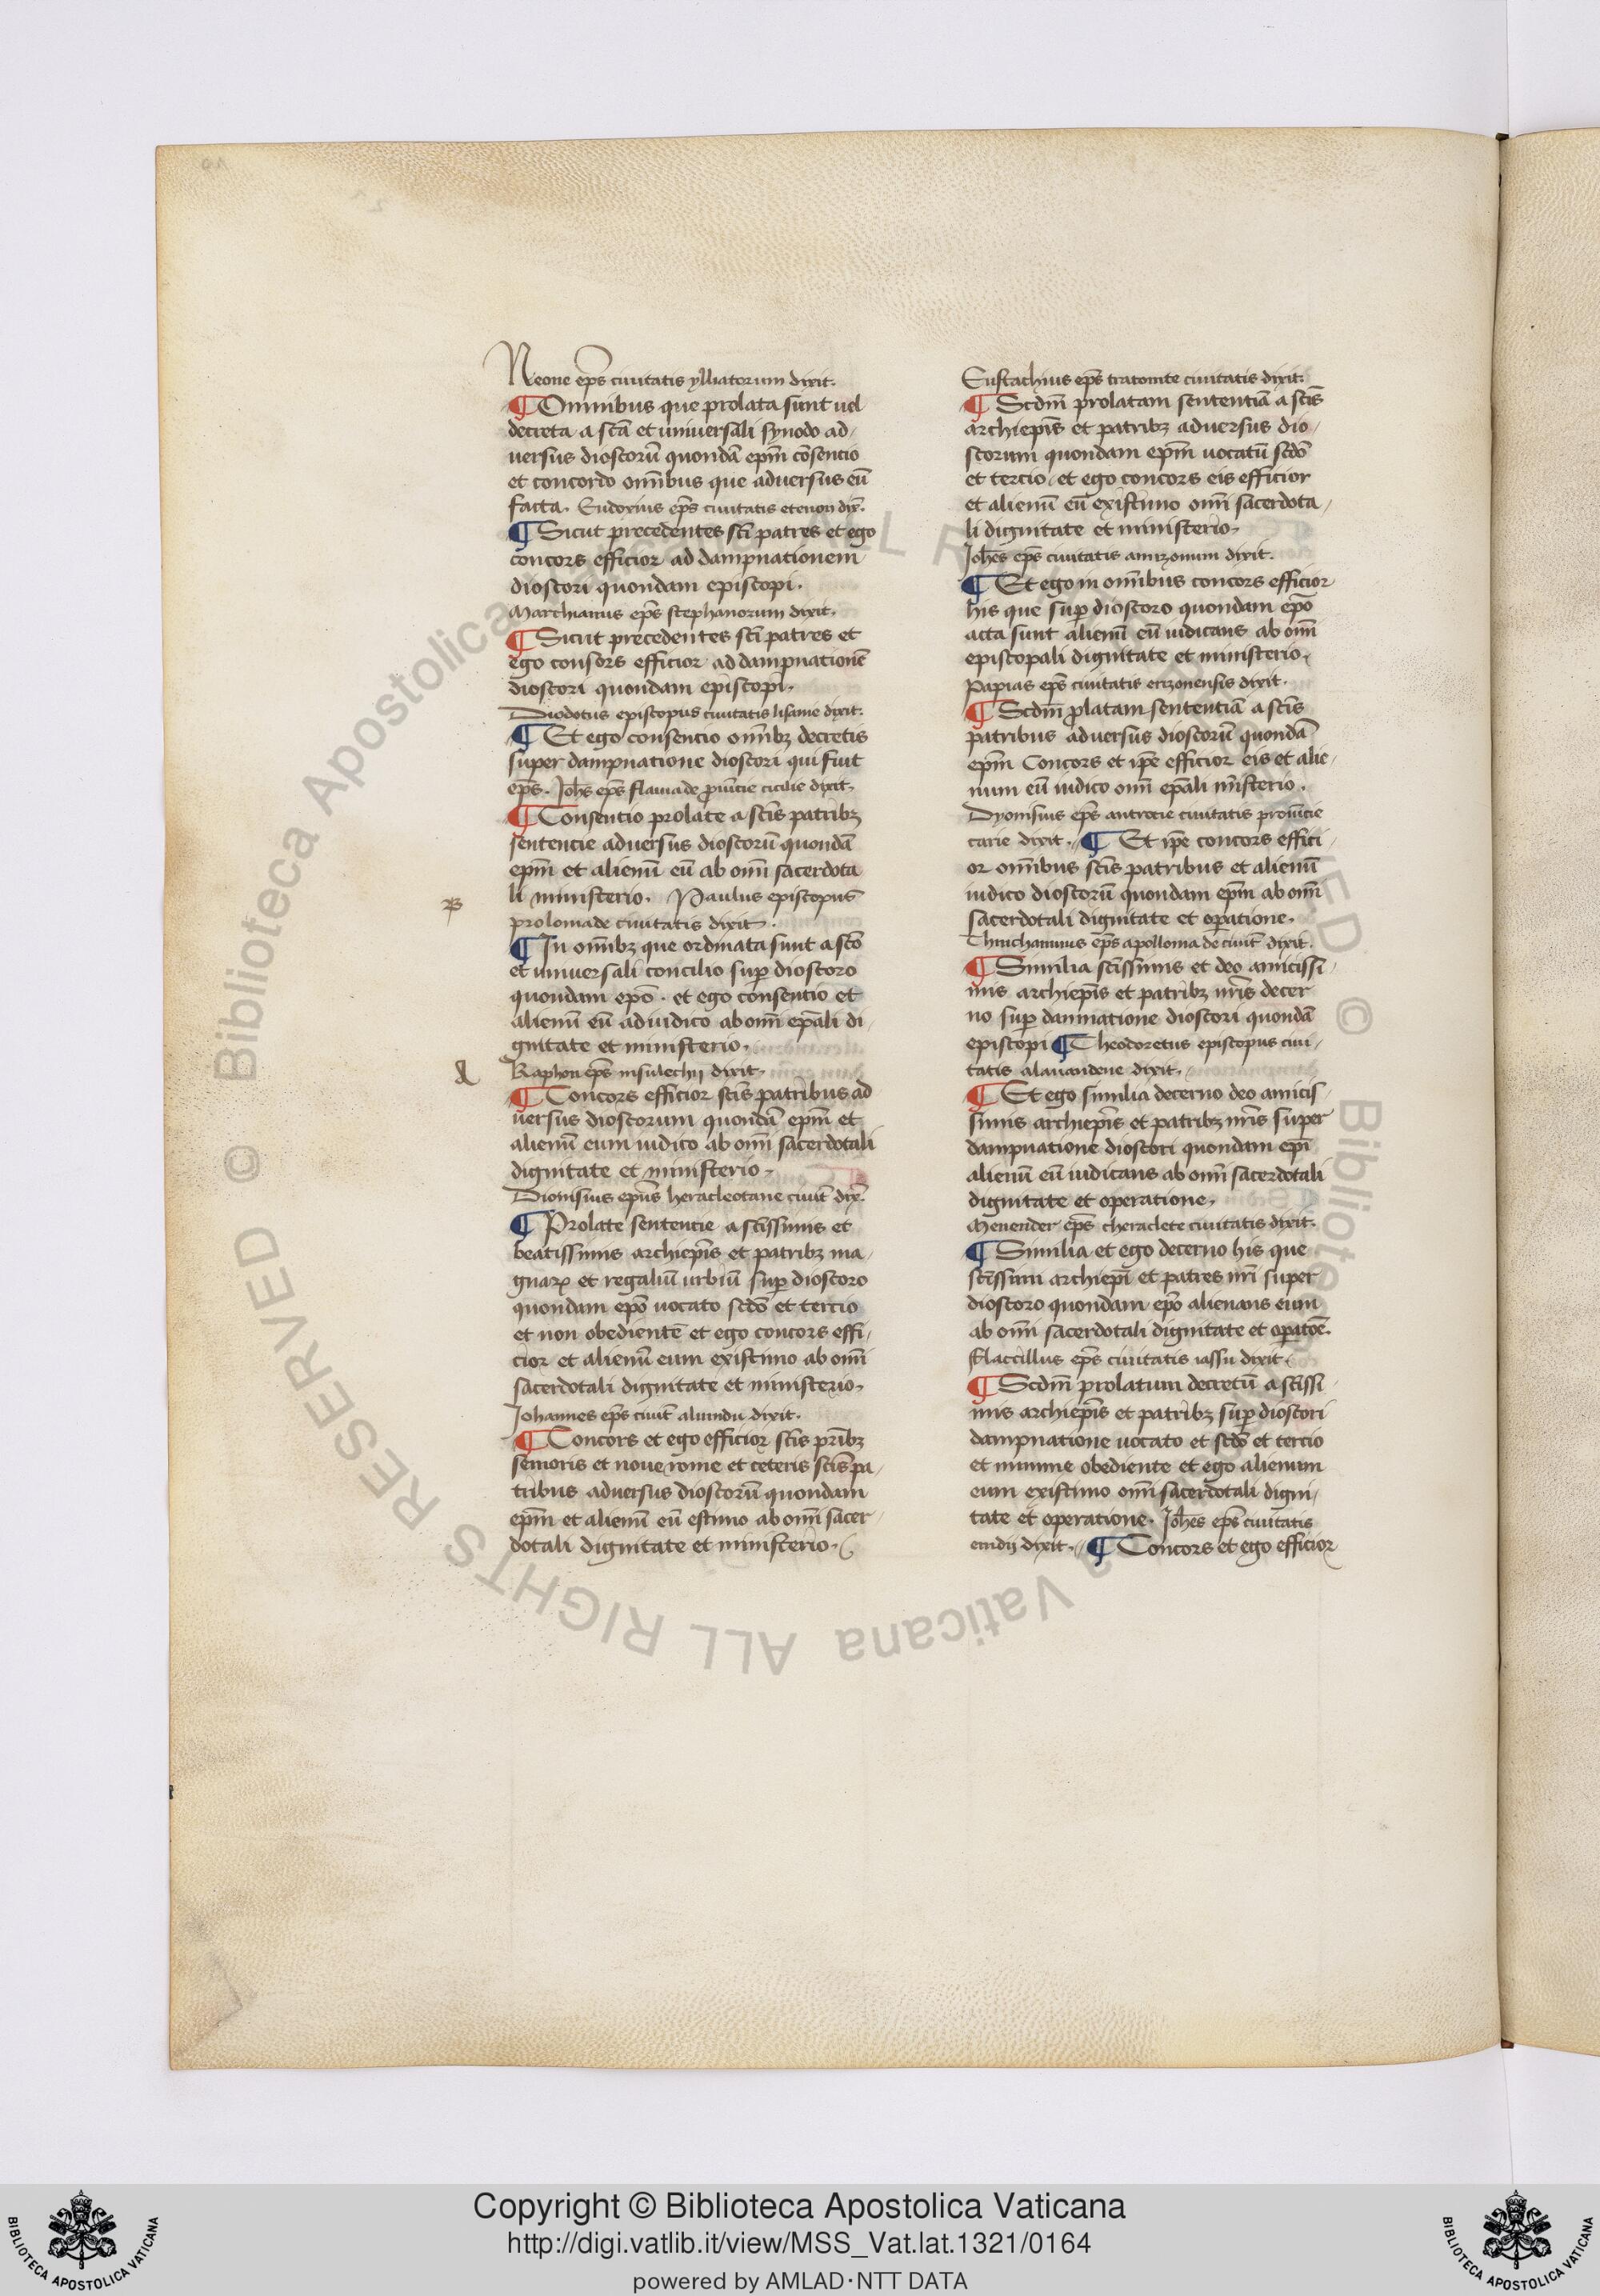 Neone ep̄s ciuitatis ylliatorum dixit.
¶ Omnibus que prolata sunt uel
decreta a scā et uniuersali synodo ad,
uersus dioscorū quondā ep̄m cōsencio
et concordo om̄ibus que aduersus eū
facta. Eudoxius ep̄s ciuitatis etenon dix̄.
¶ Sicut precedentes sc̄i patres et ego
concors efficior ad dampnationem
dioscori quondam episcopi.
Marchianus ep̄s stephanorum dixit.
¶ Sicut precedentes sc̄i patres et
ego consors efficior ad dampnationē
dioscori quondam episcopi.
Diodotus episcopus ciuitatis lisame dixit.
¶ Et ego consencio om̄ibꝫ decretis
super dampnatione dioscori qui fuit
ep̄s. Joh̄s ep̄s flauiade ꝓuīcie cicilie dixit.
¶ Consentio prolate a sc̄is patribꝫ
sentencie aduersus dioscorū quondā
ep̄m et alienū eū ab om̄i sacerdota
li ministerio. Paulus episcopus
prolomade ciuitatis dixit.
¶ In om̄ibꝫ que ordinata sunt a sc̄o
et uniuersali concilio suꝑ dioscoro
quondam ep̄o. et ego consentio et
alienū eū adiudico ab om̄i ep̄ali di,
gnitate et ministerio.
Raphon ep̄s insulechij dixit.
¶ Concors efficior sc̄is patribus ad
uersus dioscorum quondā ep̄m et
alienū eum iudico ab om̄i sacerdotali
dignitate et ministerio.
Dionisius ep̄us heracleotane ciuit̄ dix̄.
¶ Prolate sentencie a sc̄issimis et
beatissimis archiep̄is et patribꝫ ma,
gnaꝝ et regaliū urbiū suꝑ dioscoro
quondam ep̄o uocato sc̄do et tercio
et non obedientē et ego concors effi,
cior et alienū eum existimo ab om̄i
sacerdotali dignitate et ministerio.
Johannes ep̄s ciuit̄ aluindu dixit.
¶ Concors et ego efficior sc̄is pr̄ibꝫ
senioris et noue rome et ceteris sc̄is pa,
tribus aduersus dioscorū quondam
ep̄m et alienū eū estimo ab om̄i sacer
dotali dignitate et ministerio.
Eustachius ep̄s tratomte ciuitatis dixit.
¶ Scd̄m prolatam sententiā a sc̄is
archiep̄is et patribꝫ aduersus dio,
scorum quondam ep̄m uocatū sc̄do
et tercio et ego concors eis efficior
et alienū eū existimo om̄i sacerdota,
li dignitate et ministerio.
Joh̄es ep̄s ciuitatis amizonum dixit.
¶ Et ego in om̄ibus concors efficior
his que suꝑ dioscoro quondam ep̄o
acta sunt alienū eū iudicans ab om̄i
episcopali dignitate et ministerio.
Papias ep̄s ciuitatis erizonensis dixit.
¶ Scd̄m ꝓlatam sententiā a sc̄is
patribus aduersus dioscorū quondā
ep̄m Concors et ip̄e efficior eis et alie,
num eū iudico om̄i ep̄ali mīsterio.
Dyonisius ep̄s antrocie ciuitatis prouīcie
carie dixit. ¶ Et ip̄e concors effici,
or om̄ibus sc̄is patribus et alienū
iudico dioscorū quondam ep̄m ab om̄i
sacerdotali dignitate et oꝑatione.
ep̄s apollonia de ciuit̄ dixit.
¶ Similia sc̄issimis et deo amicissi,
mis archiep̄is et patribꝫ nr̄is decer
no suꝑ damnatione dioscori quondā
episcopi ¶ Theodoretus episcopus ciui,
tatis alauandene dixit.
¶ Et ego similia decerno deo amicis,
simis archiep̄is et patribꝫ nr̄is super
dampnatione dioscori quondam ep̄i
alienū eū iudicans ab om̄i sacerdotali
dignitate et operatione.
Menender ep̄s cheraclete ciuitatis dixit.
¶ Similia et ego decerno his que
sc̄issimi archiep̄i et patres nr̄i super
dioscoro quondam ep̄o alienans eum
ab om̄i sacerdotali dignitate et oꝑatoē.
Flaccillus ep̄s ciuitatis iassu dixit.
¶ Scd̄m prolatum decretū a sc̄issi,
mis archiep̄is et patribꝫ suꝑ dioscori
dampnatione uocato et sc̄do et tercio
et minime obediente et ego alienum
eum existimo om̄i sacerdotali digni,
tate et operatione. Joh̄es ep̄s ciuitatis
dixit. ¶ Concors et ego efficior
© Biblioteca Apostolica Vaticana ALL RIGHTS RESERVED
Copyright © Biblioteca Apostolica Vaticana
http://digi.vatlib.it/view/MSS_Vat.lat.1321/0164
powered by AMLAD·NTT DATA
BIBLIOTECA APOSTOLICA VATICANA
BIBLIOTECA APOSTOLICA VATICANA